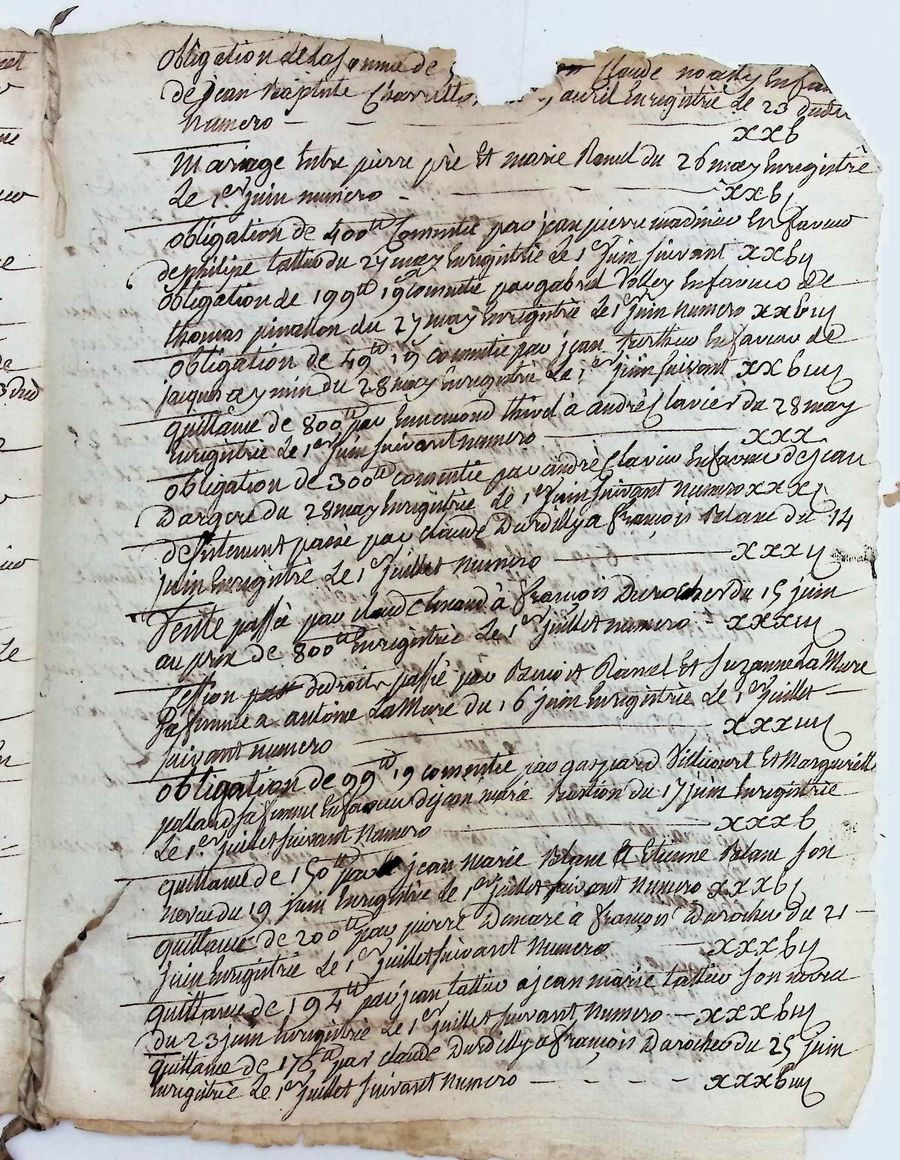 obligation de la somme de Claude noally Enfa
de jean Baptiste avril Enregistrée Le 23 dudit
Numero - xxb
Mariage Entre pierre pré Et marie Ranel du 26 may Enregistré
Le 1er juin numero - xxbj
obligation de 400tt Comentie par jean pierre En faveur
de philipe tattu du 27 may Enregistrée Le 1er juin suivant xxbij
obligation de 199tt 19 comentie par gabriel Volley En faveur de
thomas pination du 27 may Enregistrée Le 1er juin numero xxbiij
obligation de 49tt 19 comentie par jean En faveur de
jaques aymin du 28 may Enregistrée Le 1er juin suivant xxbiiij
quittance de 800tt par thivel à andré Clavier du 28 may
Enregistrée Le 1er juin suivant numero xxx
obligation de 300tt comentie par andré Clavier En faveur de jean
Dargere du 28 may Enregistrée Le 1er juin suivant Numero xxxj
passé par claude Durdilly a françois Blanc du 14
juin Enregistrée Le 1er juillet Numero xxxij
Vente passée par claude à françois Durocher du 15 juin
au prix de 800tt Enregistrée Le 1er juillet numero - xxxiij
Cession de droits passée par Benoist Ranel Et Suzanne La Mure
sa femme a antoine La Mure du 16 juin Enregistrée Le 1er juillet
suivant numero xxxiiij
obligation de 99tt 19 comentie par gaspard Et Margueritte
pollard sa femme En faveur de jean marie du 17 juin Enregistrée
Le 1er juillet suivant Numero xxxb
quittance de 150tt par jean Marie Blanc Et Etienne Blanc son
neveu du 19 juin Enregistrée Le 1er juillet suivant Numero xxxbj
quittance de 200tt par pierre Damaré à françois Durocher du 21
juin Enregistrée Le 1er juillet suivant Numero xxxbij
quittance de 194tt par jean tattu a jean marie tattu son
du 23 juin Enregistrée Le 1er juillet suivant numero - xxxbiij
quittance de par claude Durdilly a françois Durocher du 25 juin
Enregistrée Le 1er juillet suivant Numero - - - - xxxbiiij